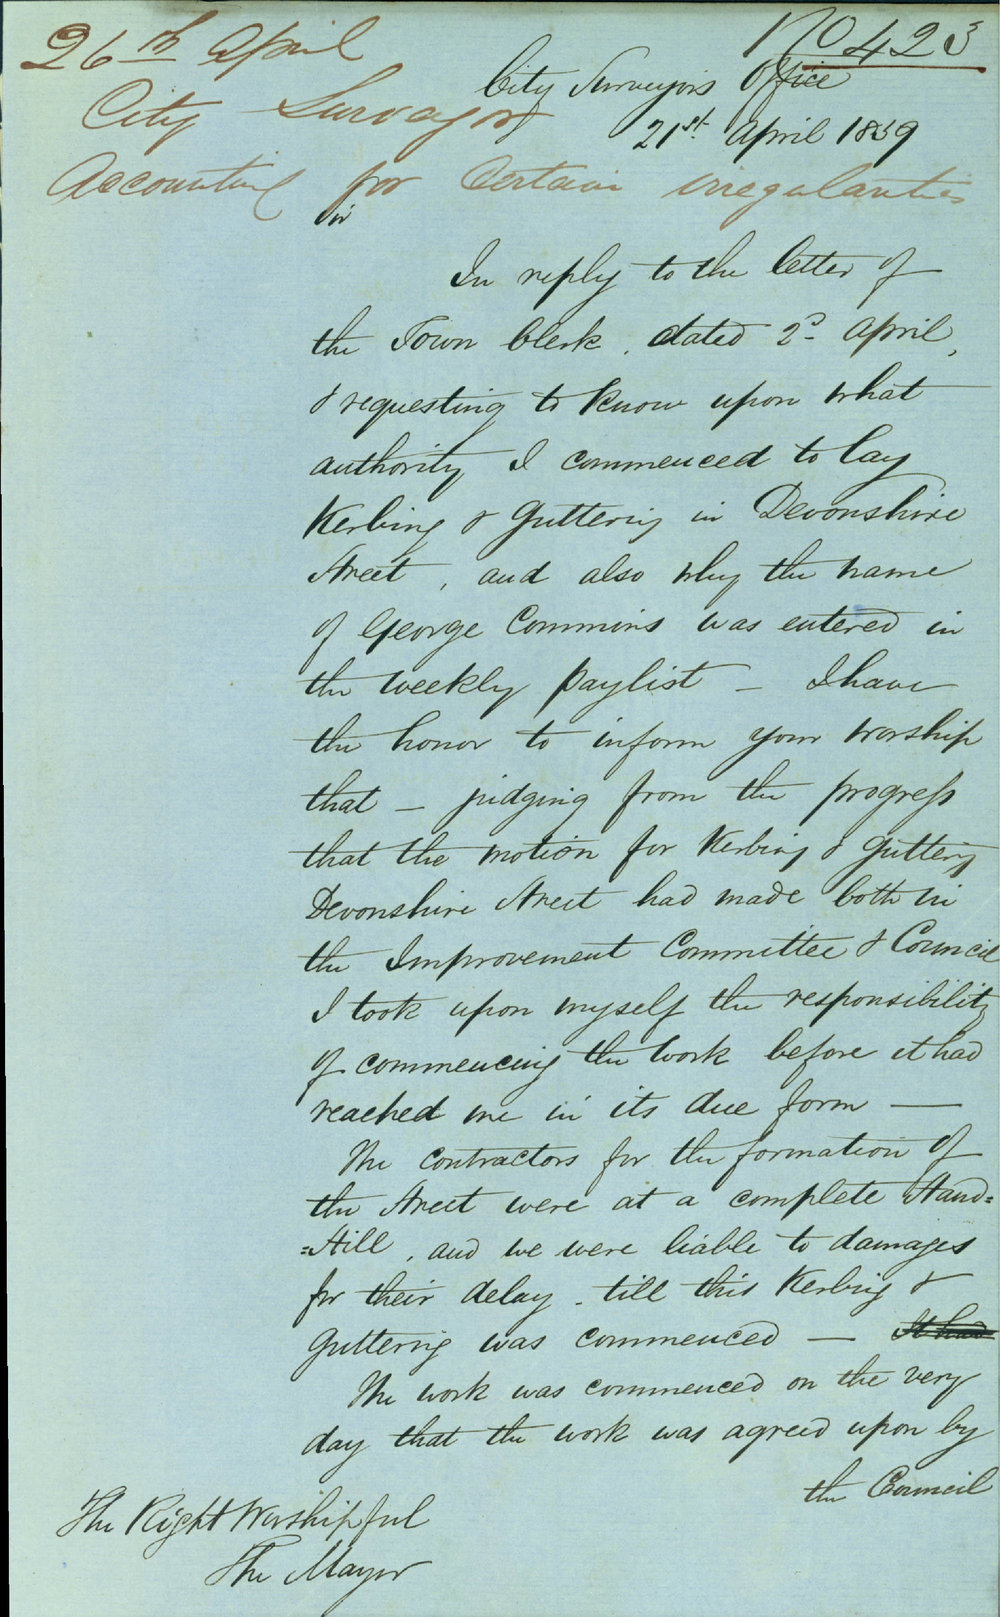 No 423
26th April
City Surveyors Office
City Surveyor
21st April 1859
Accounting for Certain irregularities
Sir
In reply to the letter of
the Town Clerk, dated 2d April,
& requesting to know upon what
authority I commenced to lay
Kerbing & Guttering in Devonshire
Street, and also why the name
of George Commins was entered in
the weekly paylist – I have
the honor to inform your Worship
that – judging from the progress
that the motion for Kerbing & Guttering
Devonshire Street had made both in
the Improvement Committee & Council
I took upon myself the responsibility
of commencing the work before it had
reached me in its due form —
The contractors for the formation of
the Street were at a complete Stand=
=Still, and we were liable to damages
for their delay. till this Kerbing &
Guttering was commenced — It had
The work was commenced on the very
day that the work was agreed upon by
the Council
The Right Worshipful
The Mayor